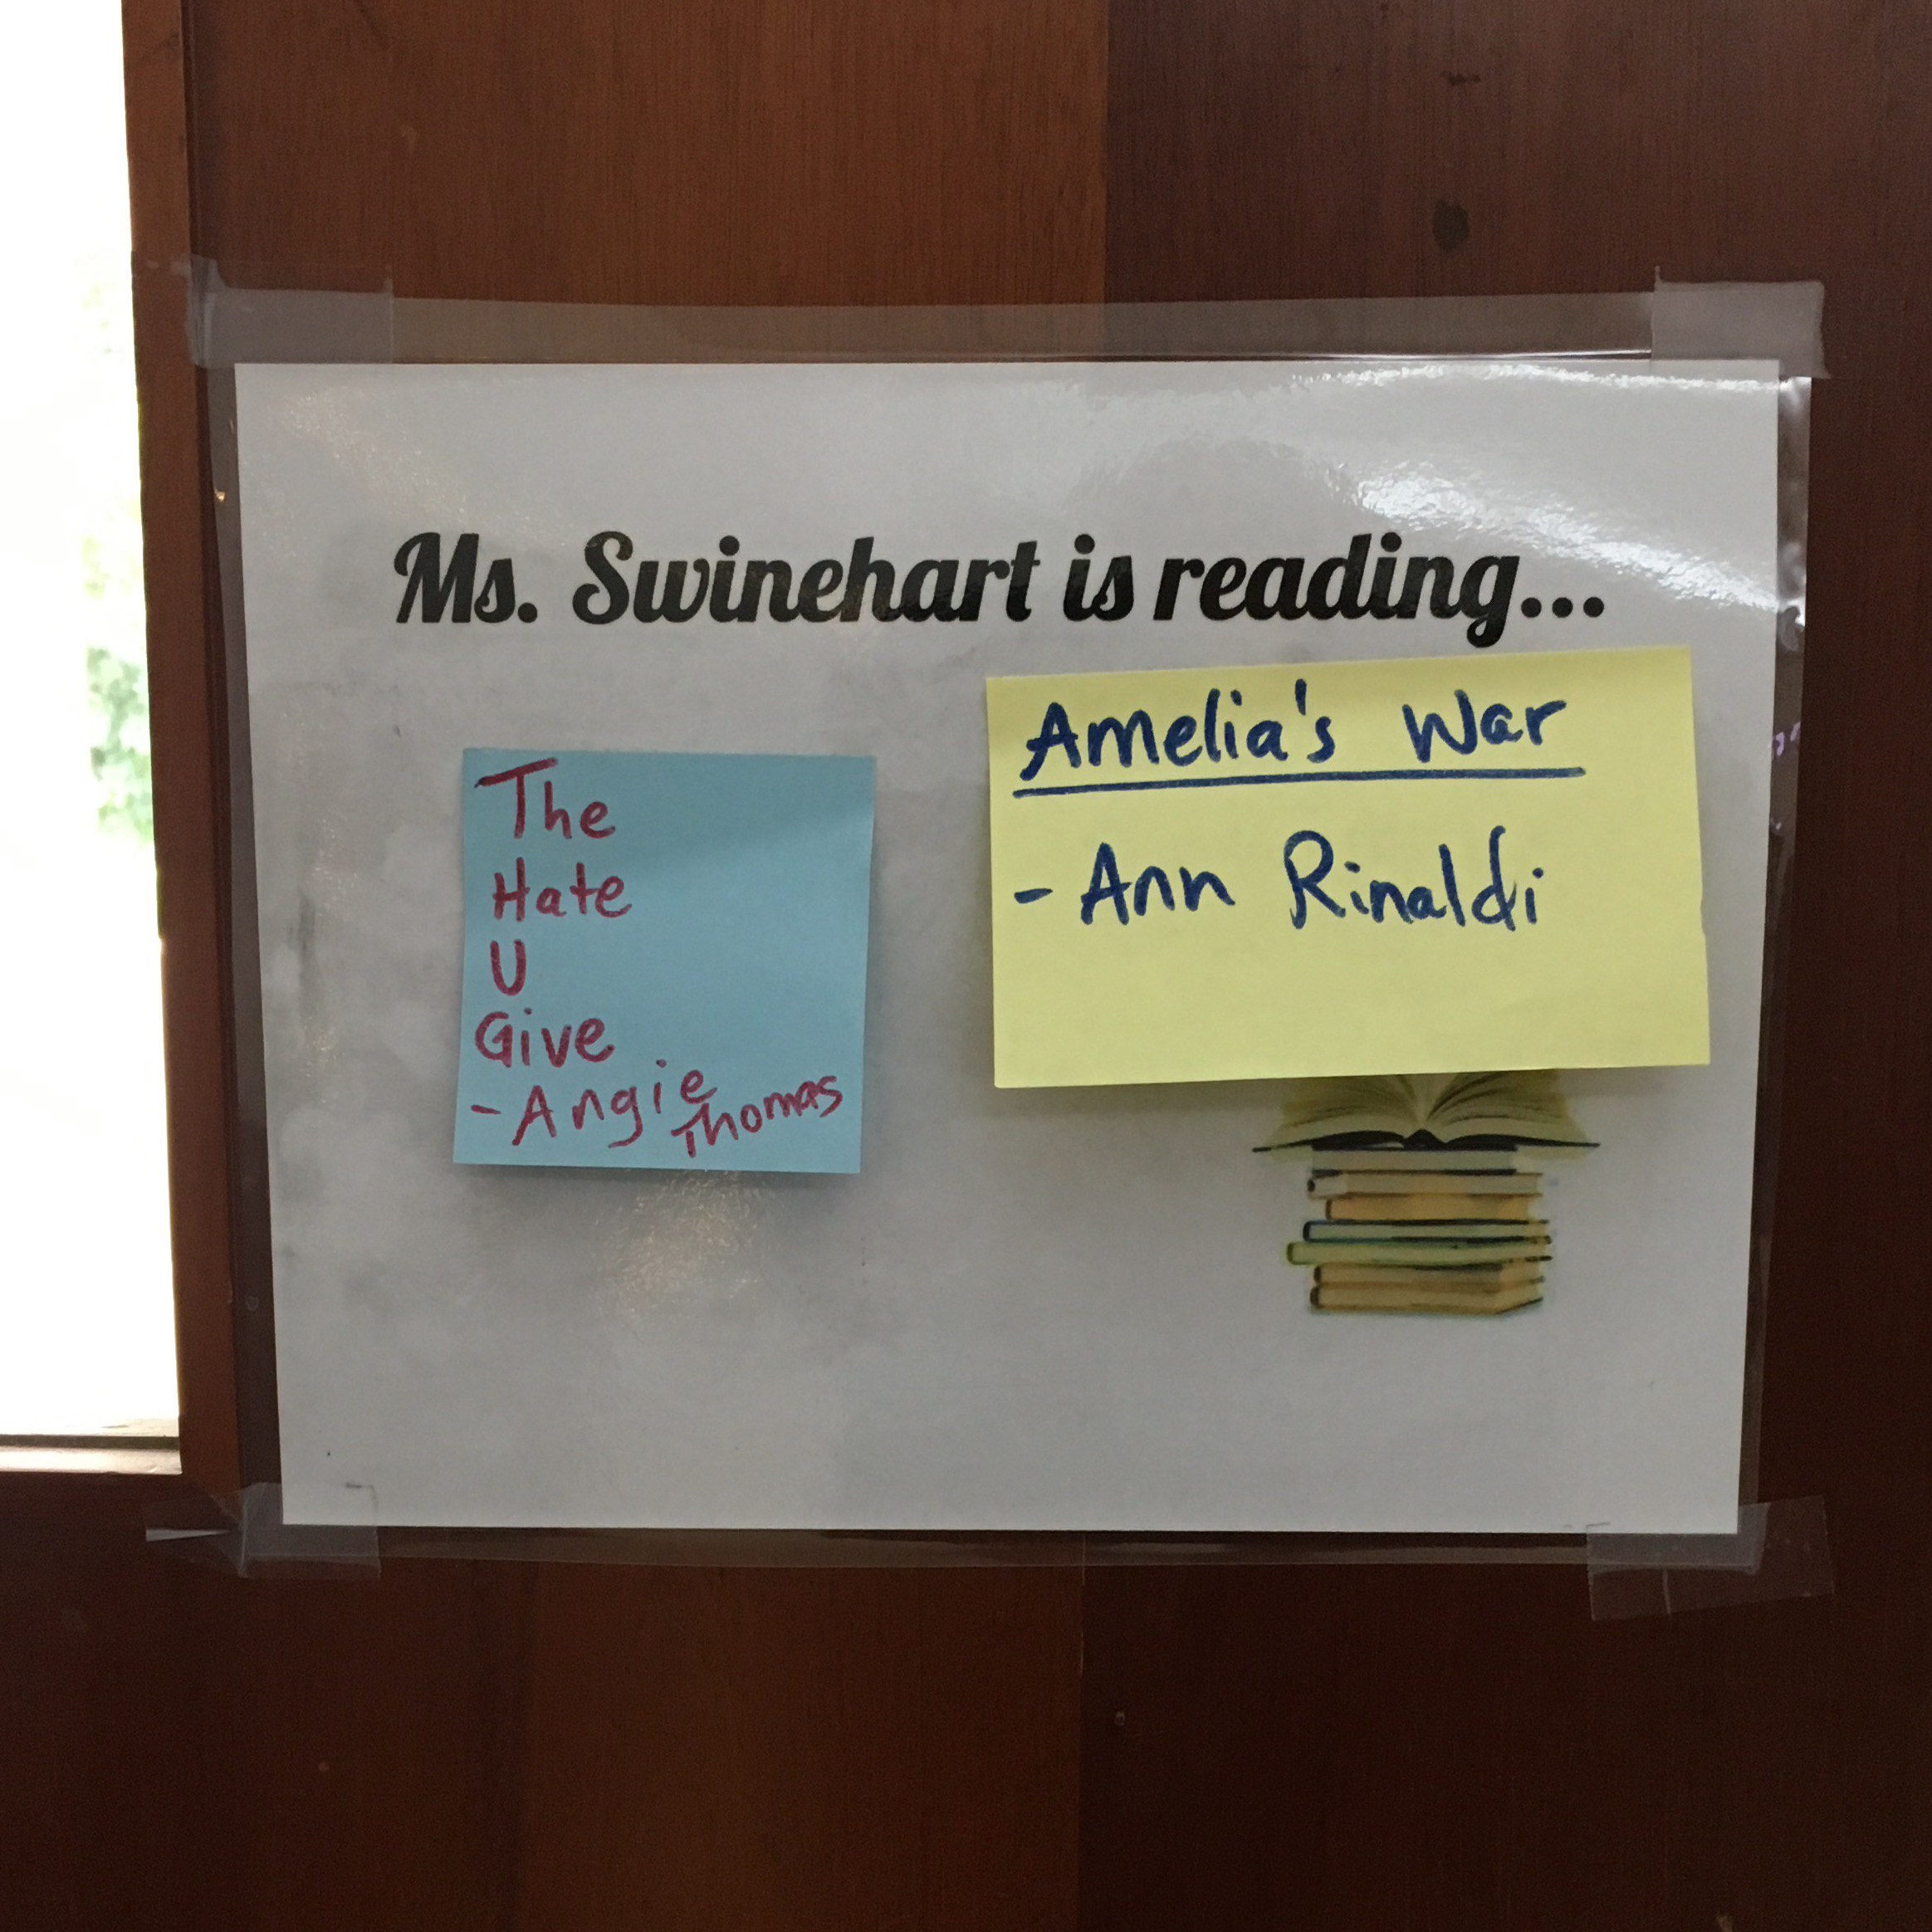 Ms. Swinehart is reading...
The
Hate
U
Give
- Angie
Thomas
Amelia's War
- Ann Rinaldi